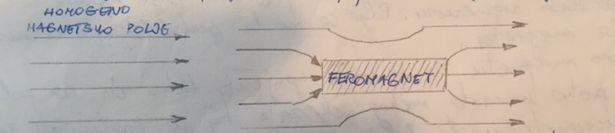 HOMOGENO
MAGNETSKO POLJE
FEROMAGNET